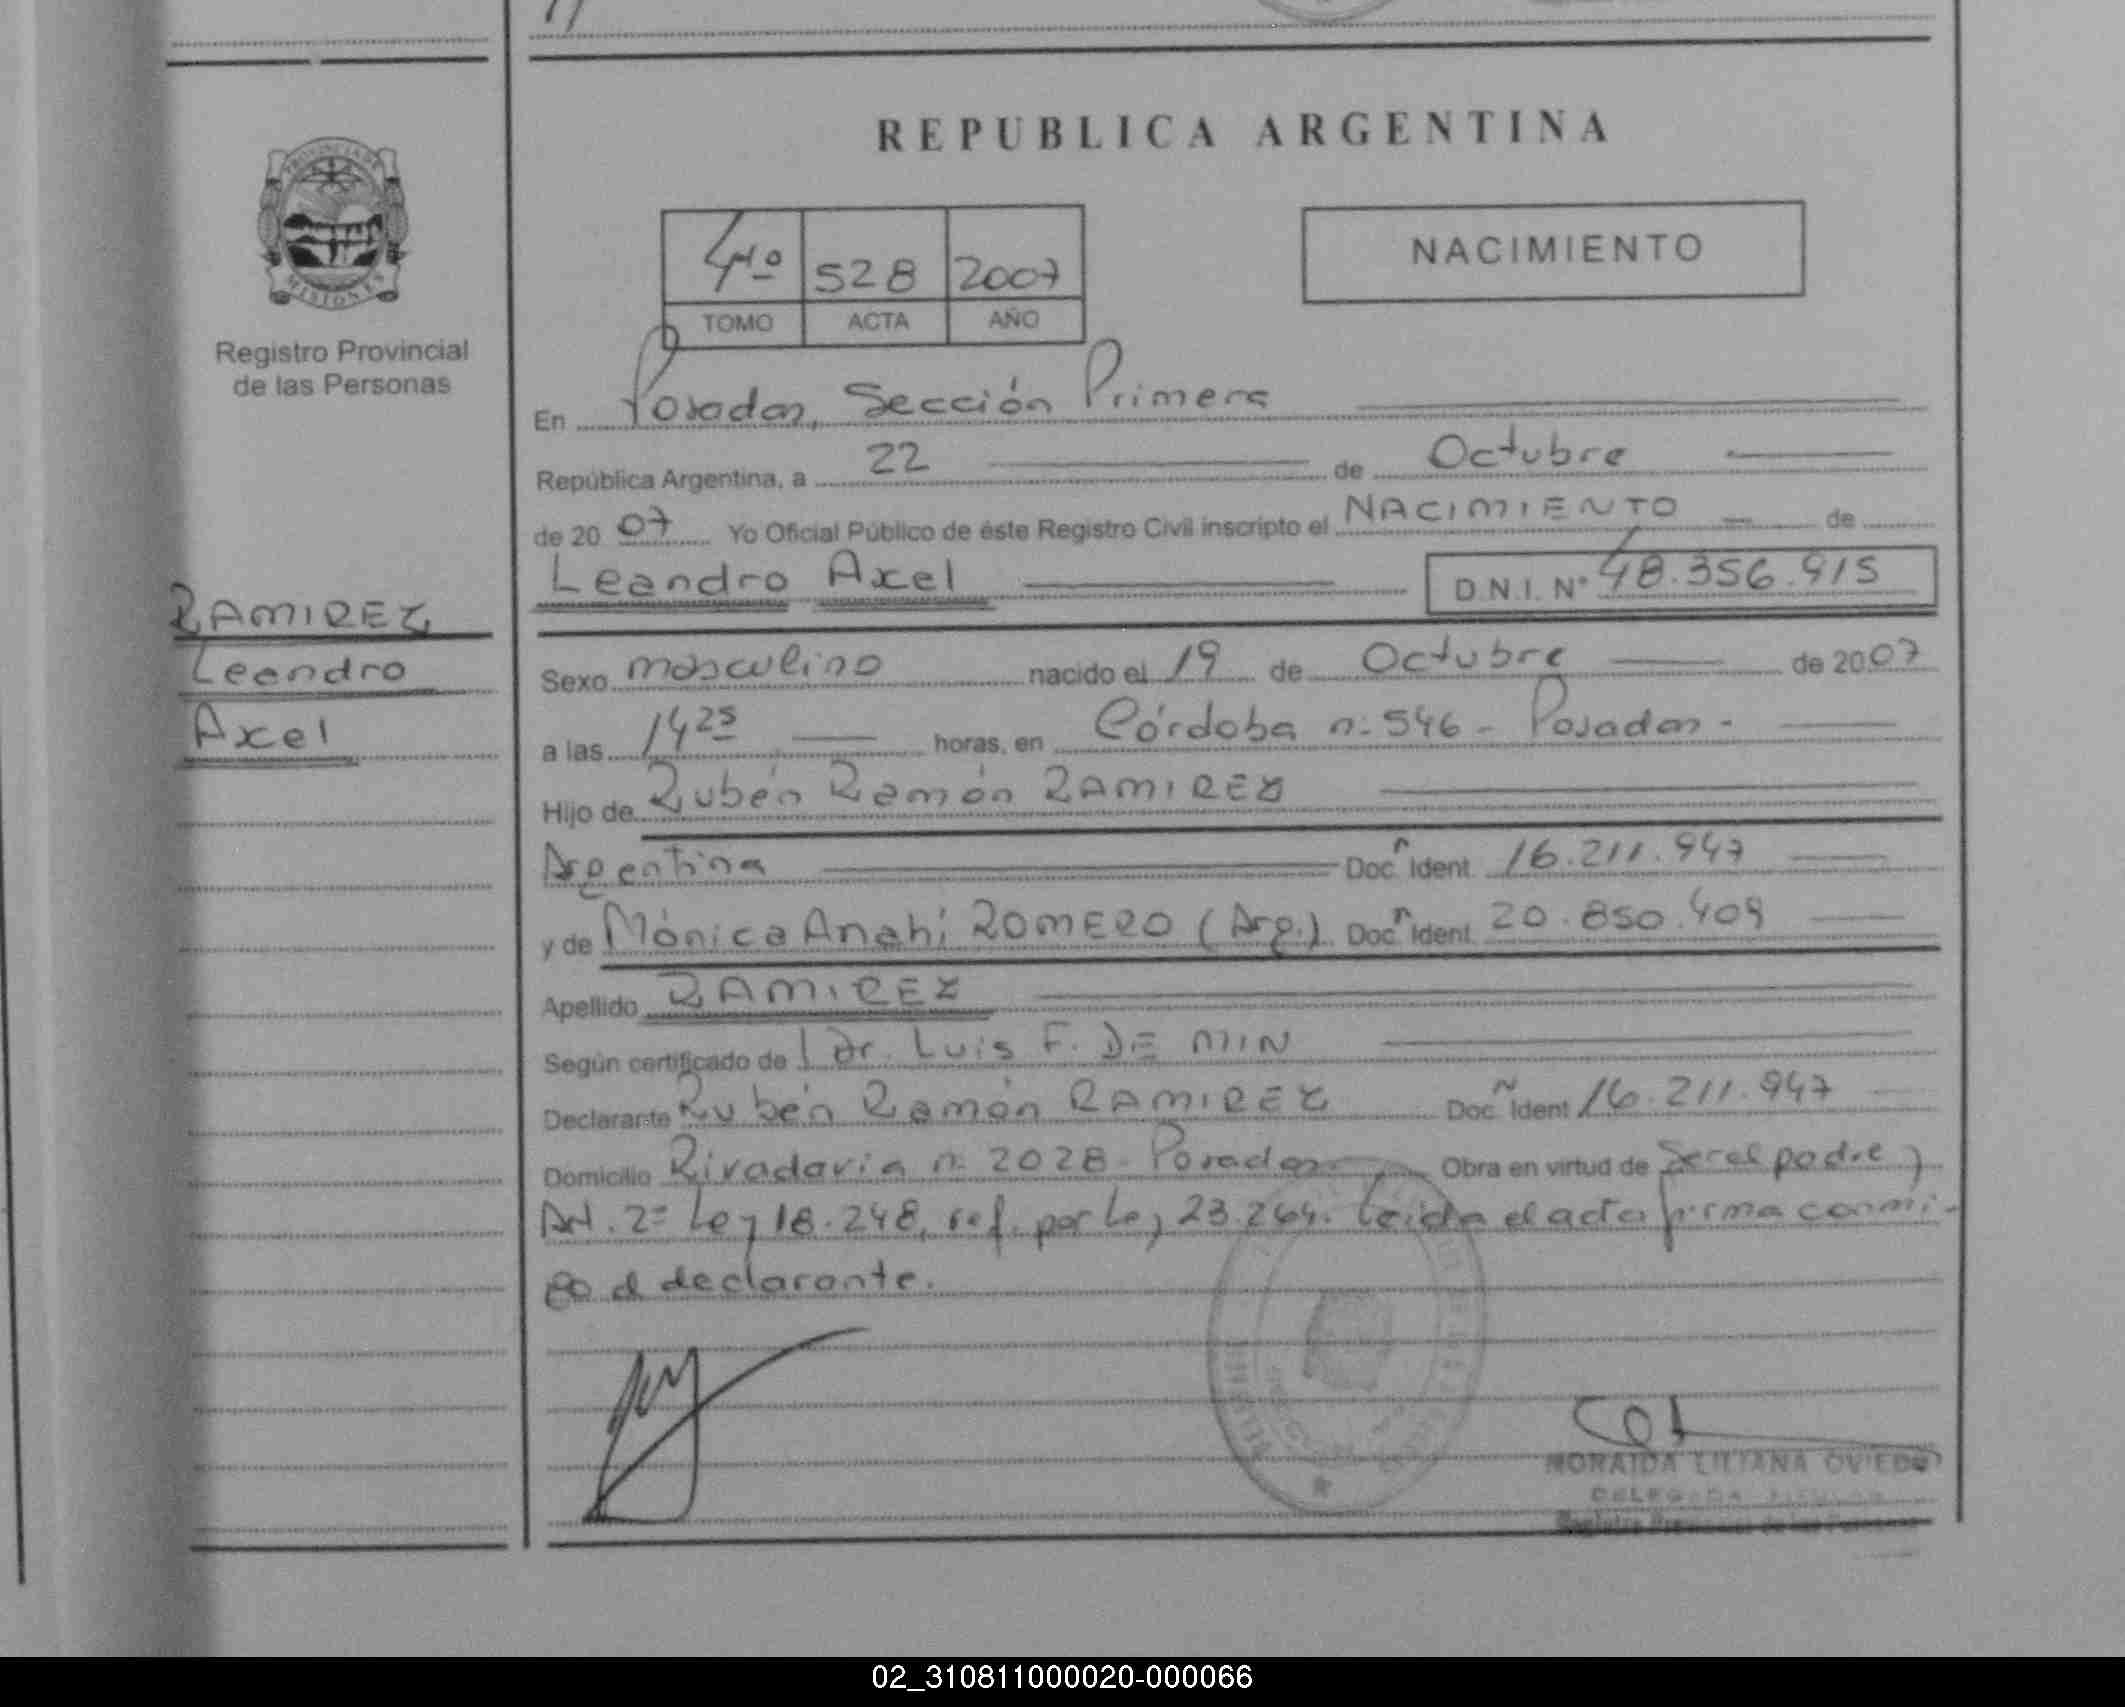 REPUBLICA ARGENTINA
PROVINCIA DE
MISIONES
Registro Provincial
de las Personas
4to 528 2007
TOMO ACTA AÑO
NACIMIENTO
En Posadas, Sección Primera
República Argentina, a 22 de Octubre
de 2007 Yo Oficial Público de éste Registro Civil inscripto el NACIMIENTO de
Leandro Axel D.N.I. N° 48.356.915
RAMIREZ
Leandro
Axel
Sexo masculino nacido el 19 de Octubre de 2007
a las 14 25 horas, en Córdoba n: 546 - Posadas -
Hijo de Rubén Ramón RAMIREZ
Argentina Doc. Ident. 16.211.947
y de Mónica Anahí ROMERO (Arg.) Doc. Ident. 20.850.409
Apellido RAMIREZ
Según certificado de Dr. Luis F. DE MIN
Declarante Rubén Ramón RAMIREZ Doc. Ident. 16.211.947
Domicilio Rivadavia n: 2028 - Posadas Obra en virtud de Ser el padre y
Art. 2= Ley 18.248, ref. por Ley 23.264. Leída el acta firma conmi-
go el declarante.
MORAIDA LILIANA OVIEDO
DELEGADA TITULAR
02_310811000020-000066